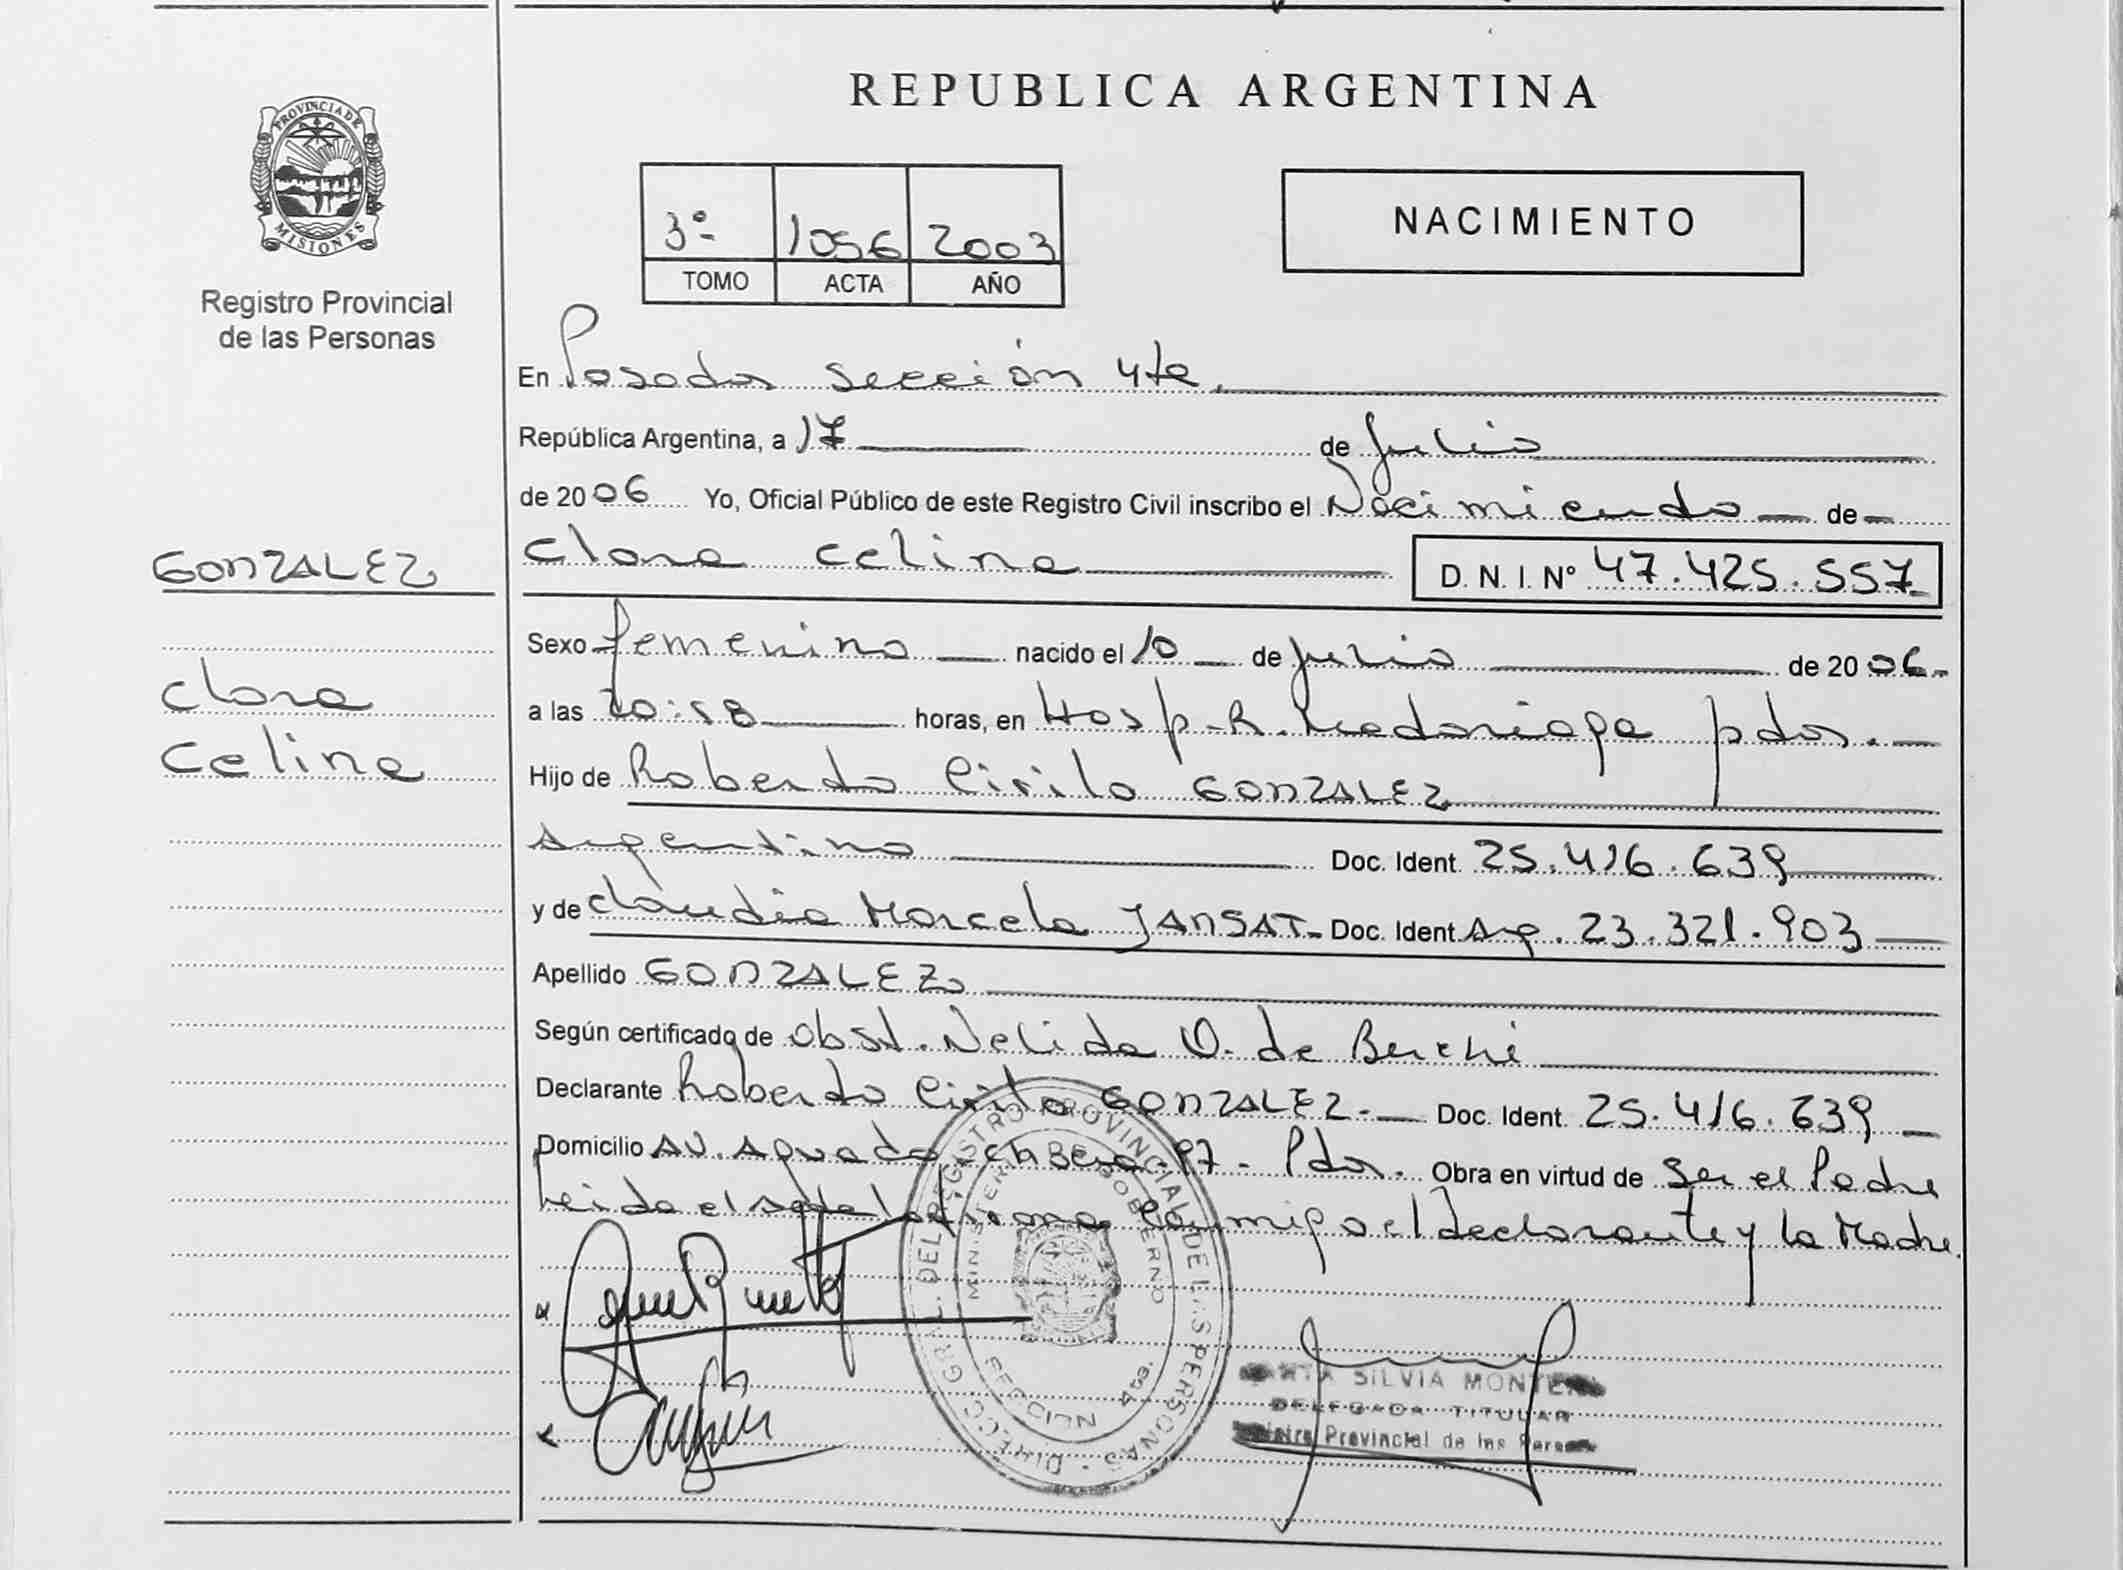 PROVINCIA DE
MISIONES
Registro Provincial
de las Personas
REPUBLICA ARGENTINA
3º 1056 2003
TOMO ACTA AÑO
NACIMIENTO
En Posadas sección 4ta.
República Argentina, a 17 de Julio
de 2006 Yo, Oficial Público de este Registro Civil inscribo el Nacimiento de
GONZALEZ
Clara Celina D. N. I. Nº 47.425.557
Sexo femenino nacido el 10 de Julio de 2006
Clara
a las 20:58 horas, en Hosp. R. Madariaga pdas.
Celina
Hijo de Roberto Cirilo GONZALEZ
Argentino Doc. Ident. 25.416.639
y de Claudia Marcela JANSAT Doc. Ident. Arg. 23.321.903
Apellido GONZALEZ
Según certificado de obst. Nelida O. de
Declarante Roberto Cirilo GONZALEZ Doc. Ident. 25.416.639
Domicilio AV. Aguado Pdas. Obra en virtud de ser el Padre
Leida el acta la firma conmigo el declarante y la Madre.
DIRECC. GRAL. DEL REGISTRO PROVINCIAL DE LAS PERSONAS
MINISTERIO GOBIERNO
SILVIA
DELEGADA TITULAR
Provincial de las